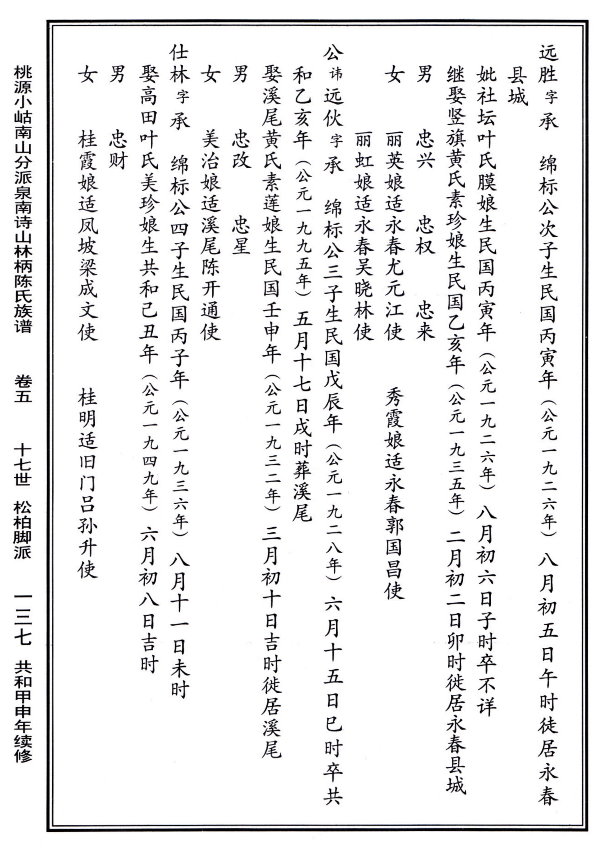 远胜字承　绵标公次子生民国丙寅年（公元一九二六年）八月初五日午时徒居永春
县城
妣社坛叶氏膜娘生民国丙寅年（公元一九二六年）八月初六日子时卒不详
继娶竖旗黄氏素珍娘生民国乙亥年（公元一九三五年）二月初二日卯时徙居永春县城
男　忠兴　忠权　忠来
女　丽英娘适永春尤元江使　秀霞娘适永春郭国昌使
丽虹娘适永春吴晓林使
公讳远伙字承　绵标公三子生民国戊辰年（公元一九二八年）六月十五日巳时卒共
和乙亥年（公元一九九五年）五月十七日戌时葬溪尾
娶溪尾黄氏素莲娘生民国壬申年（公元一九三二年）三月初十日吉时徙居溪尾
男　忠改　忠星
女　美治娘适溪尾陈开通使
仕林字承　绵标公四子生民国丙子年（公元一九三六年）八月十一日未时
娶高田叶氏美珍娘生共和己丑年（公元一九四九年）六月初八日吉时
男　忠财
女　桂霞娘适凤坡梁成文使　桂明适旧门吕孙升使
桃源小岵南山分派泉南诗山林柄陈氏族谱　卷五　十七世　松柏脚派　一三七　共和甲申年续修